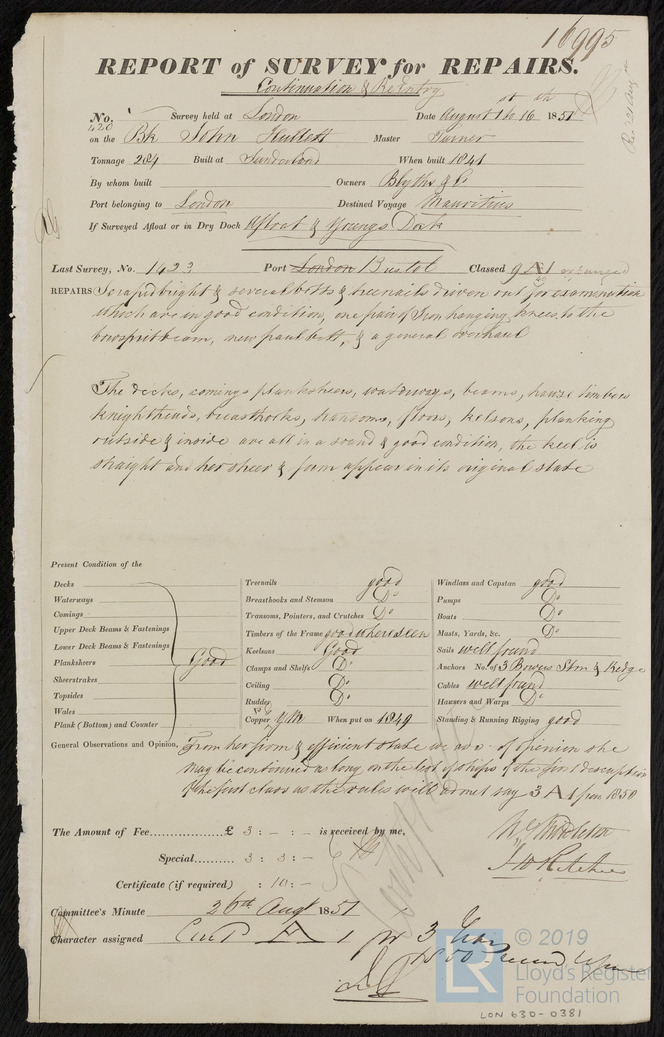 16995
REPORT of SURVEY for REPAIRS.
Continuation & ReEntry
No. 420 Survey held at London Date August 1st to 16th 1851
on the Bk John Hullett Master Turner
Tonnage 284 Built at Sunderland When built 1841
By whom built Owners Blyths & Co
Port belonging to London Destined Voyage Mauritius
If Surveyed Afloat or in Dry Dock Afloat & Youngs Dock
Last Survey, No. 1423 Port London Bristol Classed 9 A 1
REPAIRS Scraped bright & several bolts & treenails driven out for examination
which are in good condition, one pair of Iron hanging knees to the
bowsprit beam, new paul bitt, & a general overhaul
The decks, comings planksheers, waterways, beams, hawse timbers
knightheads, breasthooks, transoms, floors, kelsons, planking
outside & inside are all in a sound & good condition, the keel is
straight and her sheer & form appear in its original state
Present Condition of the
Decks
Waterways
Comings
Upper Deck Beams & Fastenings
Lower Deck Beams & Fastenings
Planksheers
Sheerstrakes
Topsides
Wales
Plank (Bottom) and Counter
Good
Treenails good
Breasthooks and Stemson Do
Transoms, Pointers, and Crutches Do
Timbers of the Frame good where seen
Keelsons Good
Clamps and Shelfs Do
Ceiling Do
Rudder Do
Copper YM When put on 1849
Windlass and Capstan good
Pumps Do
Boats Do
Masts, Yards, &c. Do
Sails well found
Anchors No. of 3 Bowers Strm & Kedge
Cables well found
Hawsers and Warps Do
Standing & Running Rigging good
General Observations and Opinion, From her firm & efficient state we are of opinion she
may be continued as long on the list of ships of the first description
of the first class as the rules will admit say 3 A 1 from 1850
The Amount of Fee £ 3 : - : - is received by me,
Special 3 : 3 : -
Certificate (if required) : 10 : -
Committee's Minute 26th Augt 1851
Character assigned Cont A 1 for 3 Years
1850
© 2019
LR
Lloyd's Register
Foundation
LON 630-0381